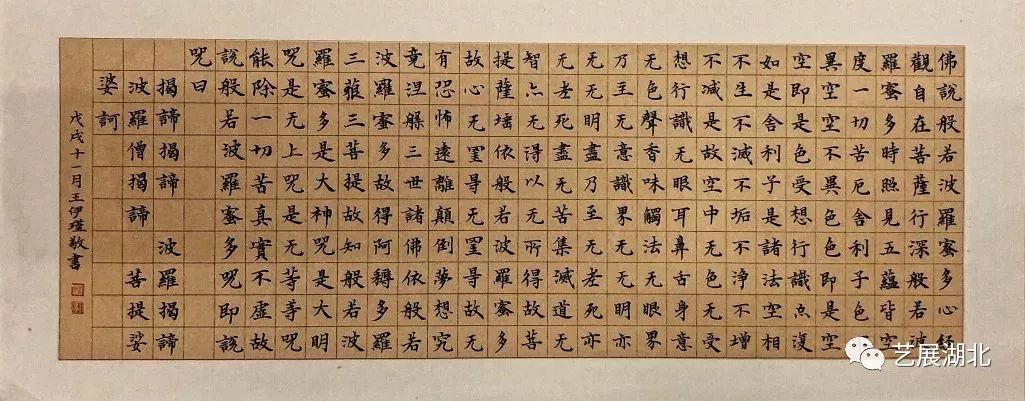 佛說般若波羅蜜多心經
觀自在菩薩行深般若波
羅蜜多時照見五蘊皆空
度一切苦厄舍利子色不
異空空不異色色即是空
空即是色受想行識亦復
如是舍利子是諸法空相
不生不滅不垢不淨不增
不減是故空中无色无受
想行識无眼耳鼻舌身意
无色聲香味觸法无眼界
乃至无意識界无无明亦
无无明盡乃至无老死亦
无老死盡无苦集滅道无
智亦无得以无所得故菩
提薩埵依般若波羅蜜多
故心无罣导无罣导故无
有恐怖遠離顛倒夢想究
竟涅槃三世諸佛依般若
波羅蜜多故得阿耨多羅
三藐三菩提故知般若波
羅蜜多是大神咒是大明
咒是无上咒是无等等咒
能除一切苦真實不虛故
說般若波羅蜜多咒即說
咒曰
揭諦揭諦 波羅揭諦
波羅僧揭諦 菩提娑
婆訶
戊戌十一月王伊瑾敬書
艺展湖北